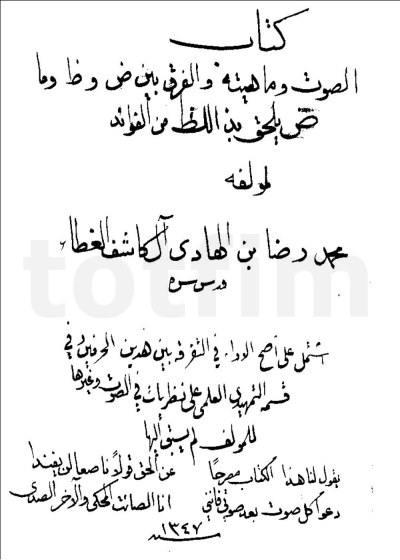 كتاب
الصوت وماهيته والفرق بين ض و ظ وما
يلحق بذلك من الفوائد
لمؤلفه
محمد رضا بن الهادي آل كاشف الغطاء
قدس سره
اشتمل على أصح الآراء في التفرقة بين هذين الحرفين وفي
قسمه التمهيدي العلمي على نظريات في الصوت وغيرها
للمؤلف لم يسبق إليها
يقول لنا هذا الكتاب مصرحا عن الحق قولا ناصعا لن يفندا
دعوا كل صوت بعد صوتي فإنني انا الصائت المحكي والآخر الصدى
١٣٤٧
totfim